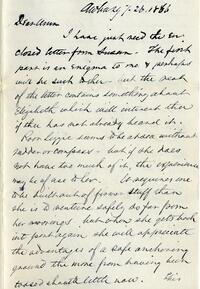 Auburn, 7-26. 1886
Dear Anna
I have just read the en
closed letter from Susan. The first
part is an enigma to me & perhaps
will be such to thee - but the rest
of the letter contains something about
Elizabeth which will interest thee
if thee has not already heard it.
Poor Lizzie seems to be at sea without
rudder or compass - but if she does
not have too much of it, the experience
may be of use to her. It requires one
to be built out of firmer stuff than
she is to venture safely so far from
her moorings but when she gets back
into port again she will appreciate
the advantages of a safe anchoring
ground the more from having been
tossed about a little now.